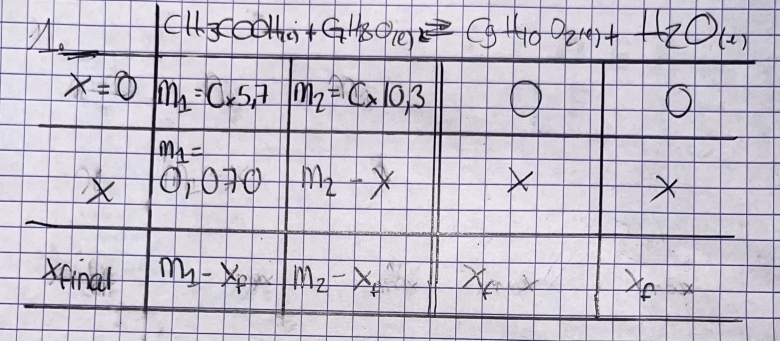 1. CH3COOH(l) + C7H8O(l) ⇌ C9H10O2(l) + H2O(l)
x=0 m1=C×5,7 m2=C×10,3 0 0
x m1= 0,070 m2-x x x
xfinal m1-xf m2-xf xf xf